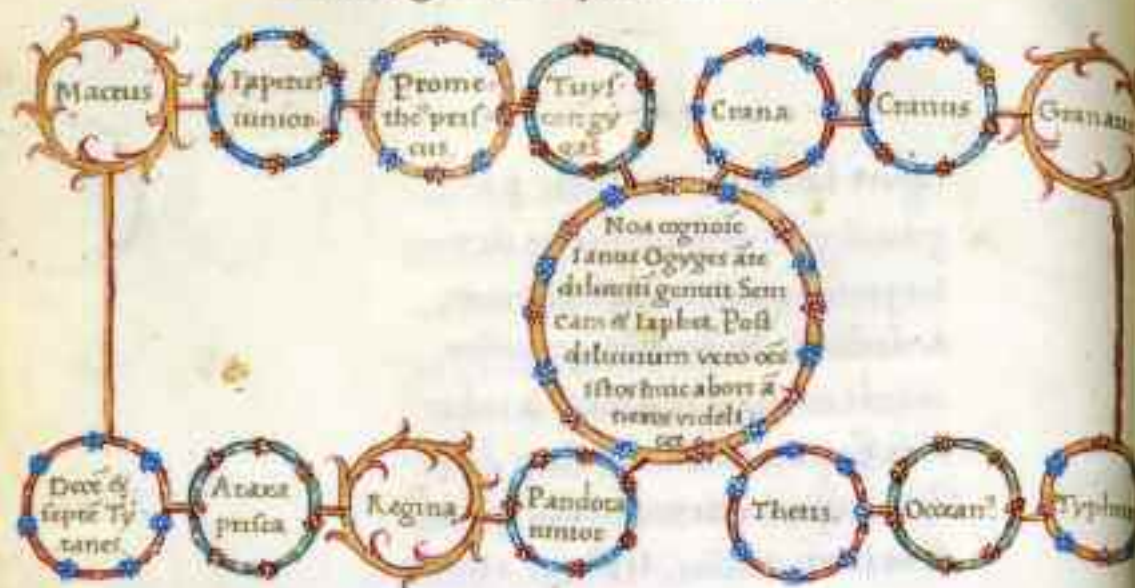 Macrus
Iapetus
iunior
Prome
the' pris
cus
Tuys
con gy
gas
Crana
Cranus
Granaus
Noa cognoīe
Ianus Ogyges āte
diluuiū genuit Sem
Cam & Iaphet. Post
diluuium vero oēs
istos huic abori ā
nexos videli
cet
Dece &
septē Ty
tanes
Araxa
prisca
Regina
Pandora
iunior
Thetis
Oceanꝰ
Typhus